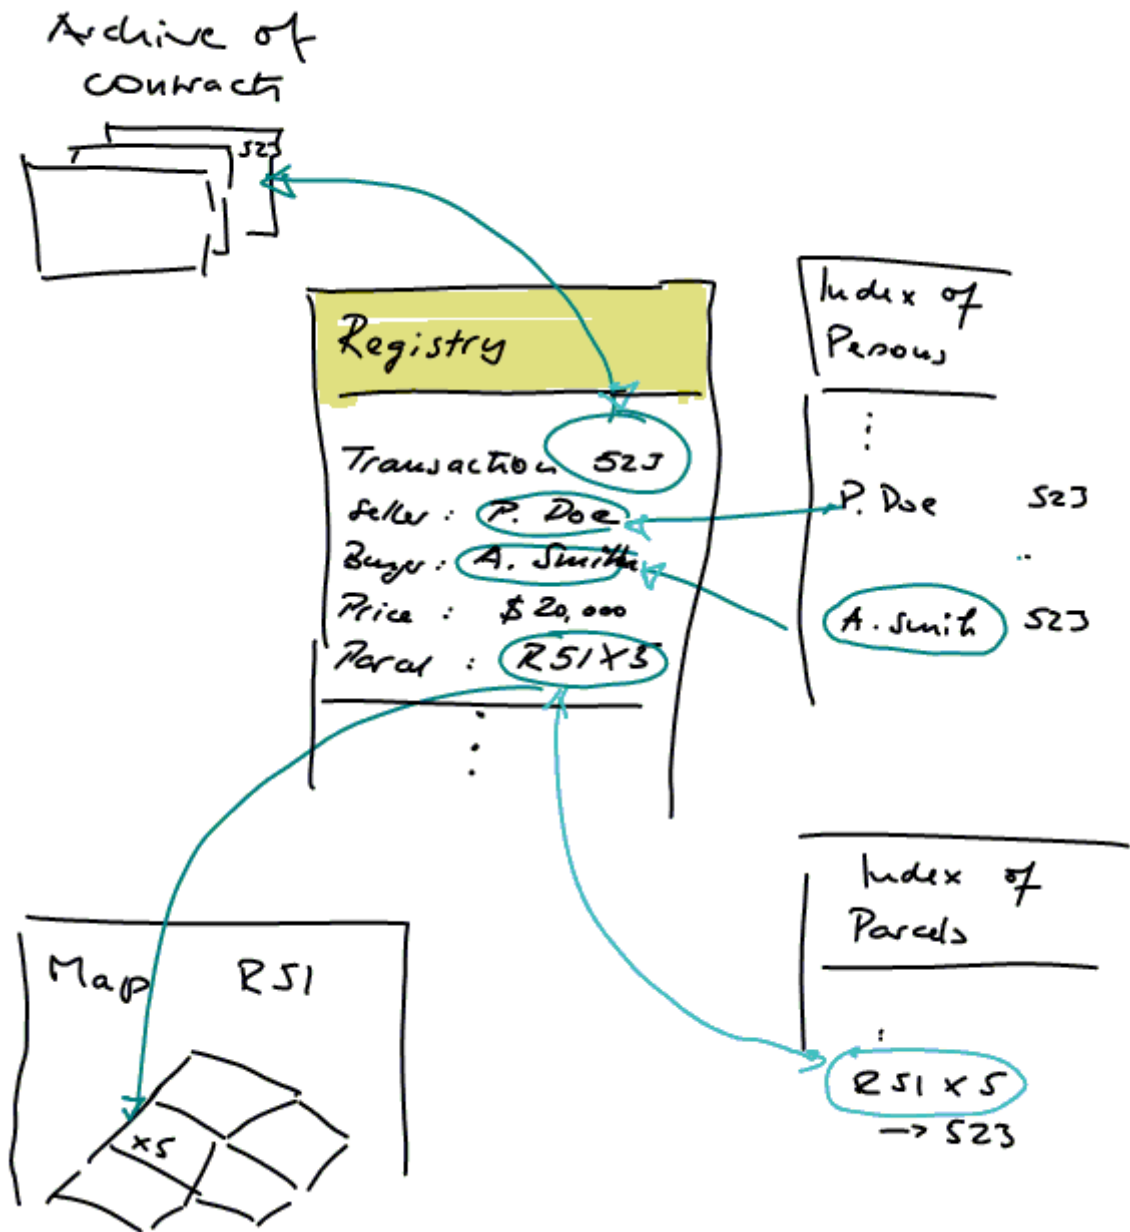 Archive of
contracts
523
Registry
Transaction 523
Seller : P. Doe
Buyer : A. Smith
Price : $ 20,000
Parcel : R51X5
Index of
Persons
P. Doe 523
A. Smith 523
Map R51
x5
Index of
Parcels
R51 x 5
→ 523